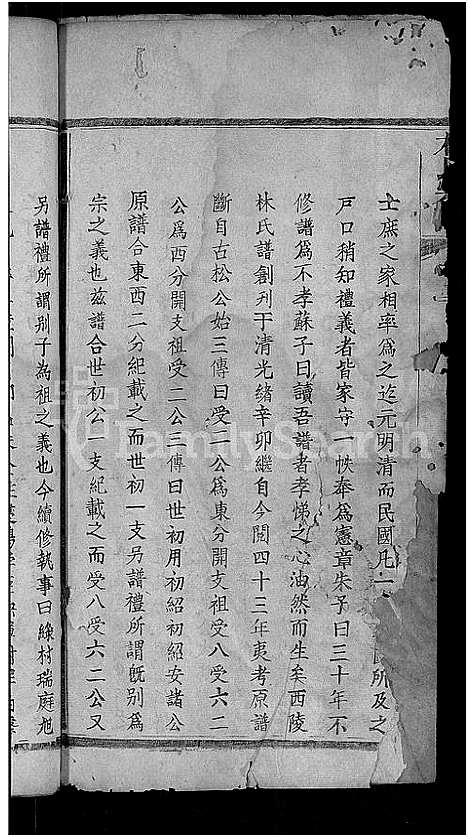 士庶之家相率為之迄元明清而民國凡一
所及之
戸口稍知禮義者皆家守一帙奉為憲章朱子曰三十年不
修譜為不孝蘇子曰讀吾譜者孝悌之心油然而生矣西陵
林氏譜創刋于清光緒辛卯繼自今閲四十三年衷考原譜
斷自古松公始三傳曰受一公為東分開支祖受八受六二
公為西分開支祖受二公傳曰世初用初紹初紹安諸公
原譜合東西二分紀載之而世初一支另譜禮所謂旣别為
宗之義也兹譜合世初公一支紀載之而受八受六二公又
另譜禮所謂别子為祖之義也今續修執事曰綠村瑞庭旭
FamilySearch